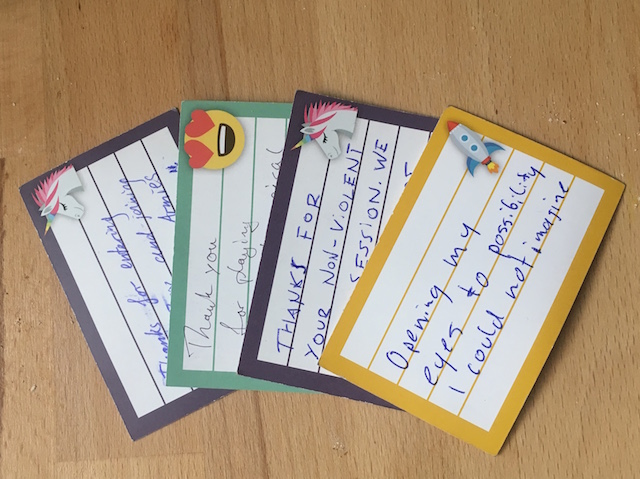 Thanks for entering
and joining
Armies
Thank you
for playing
THANKS FOR
YOUR NON-VIOLENT
SESSION. WE
Opening my
eyes to possibility
I could not imagine